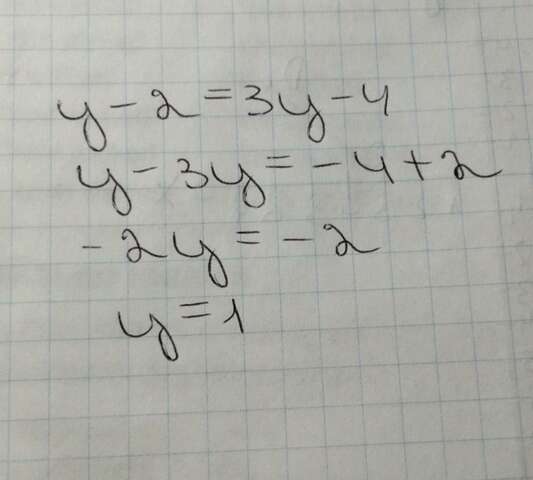 y - 2 = 3y - 4
y - 3y = - 4 + 2
- 2y = - 2
y = 1